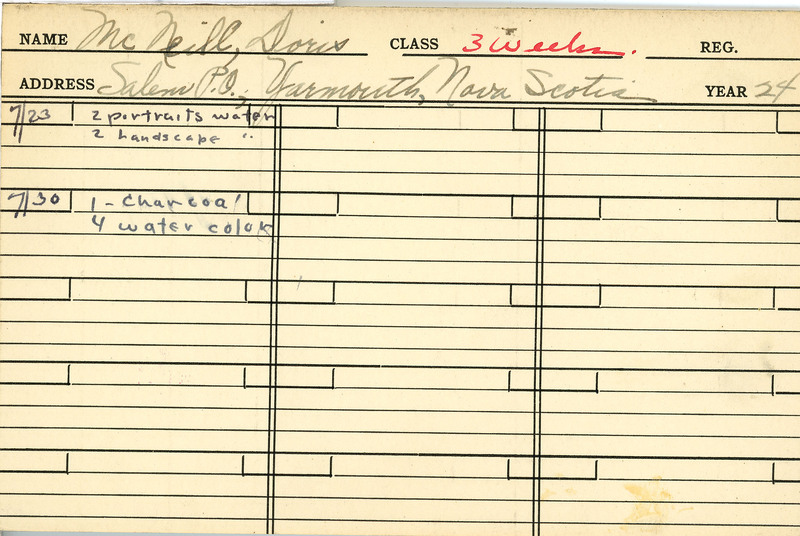 NAME Mc Neill, Doris CLASS 3 Weeks. REG.
ADDRESS Salem P.O., Yarmouth, Nova Scotia YEAR 24
7/23 2 portraits water
2 landscape "
7/30 1 - Charcoal
4 water color